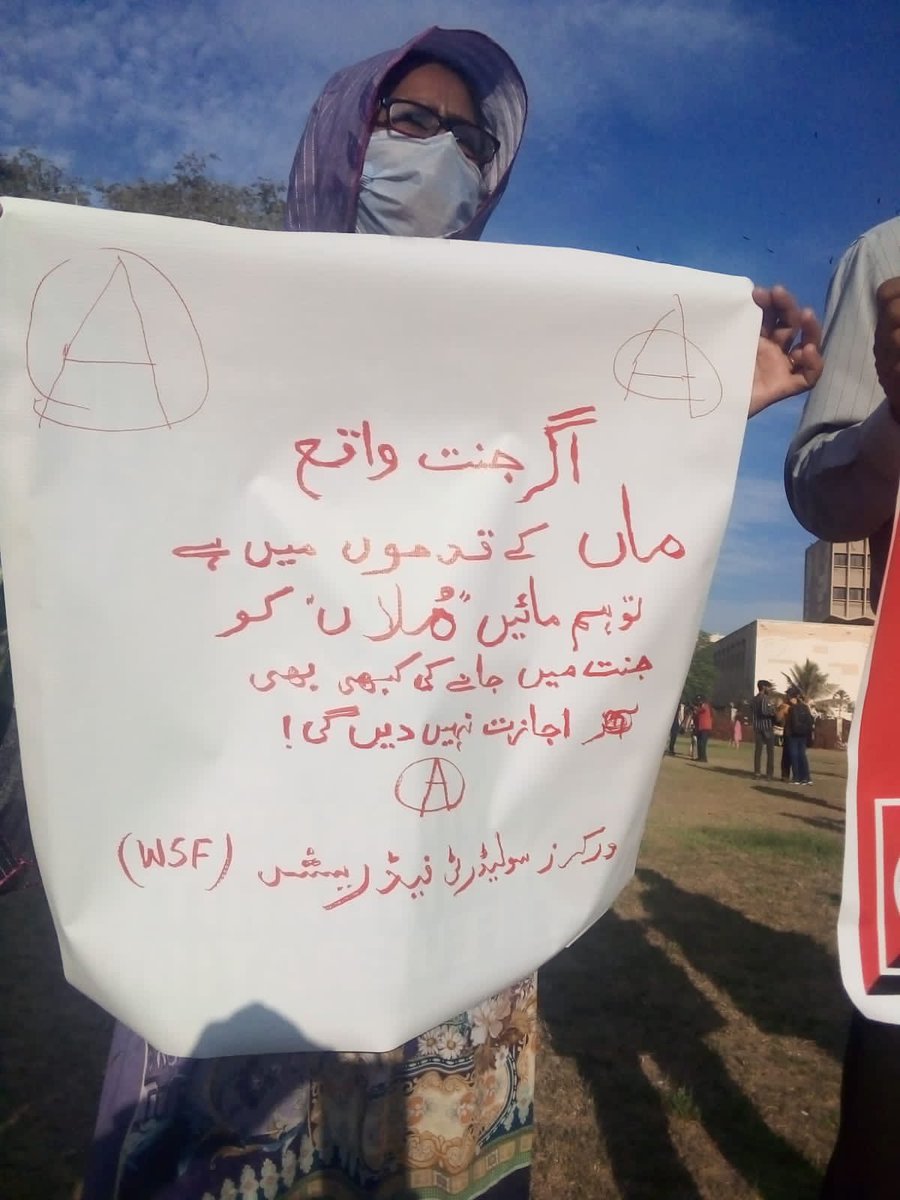 A A
اگر جنت واقع
ماں کے قدموں میں ہے
تو ہم مائیں "مُلاں" کو
جنت میں جانے کی کبھی بھی
اجازت نہیں دیں گی!
A
ورکرز سولیڈرٹی فیڈریشن (WSF)